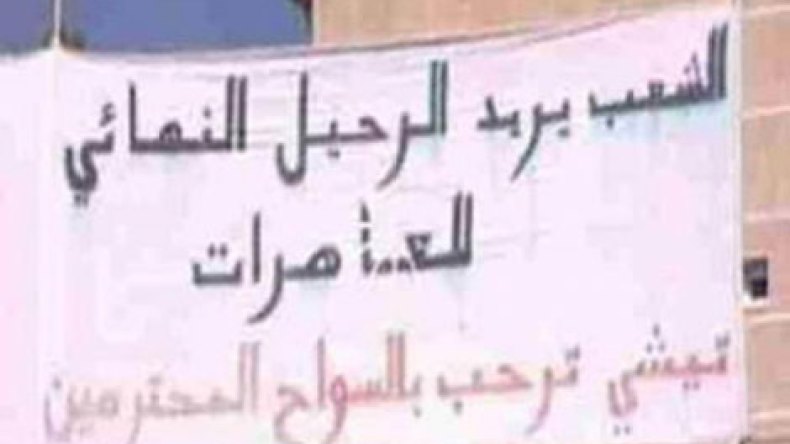 الشعب يريد الرحيل النهائي
للعـ..ـا هرات
تيشي ترحب بالسواح المحترمين